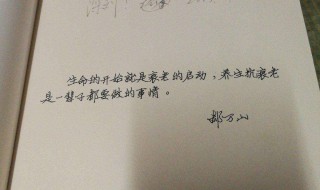 生命的开始就是衰老的启动，养生抗衰老
是一辈子都要做的事情。
郝万山